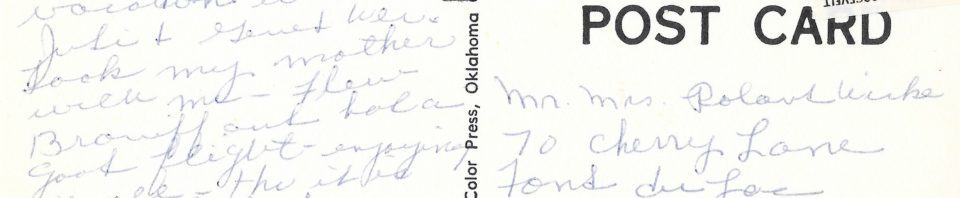 vacation
Took my mother
with me - flew
Braniff and had a
good flight - enjoying
- tho it is
Color Press, Oklahoma
POST CARD
Mr. Mrs. Roland
70 Cherry Lane
Fond du Lac